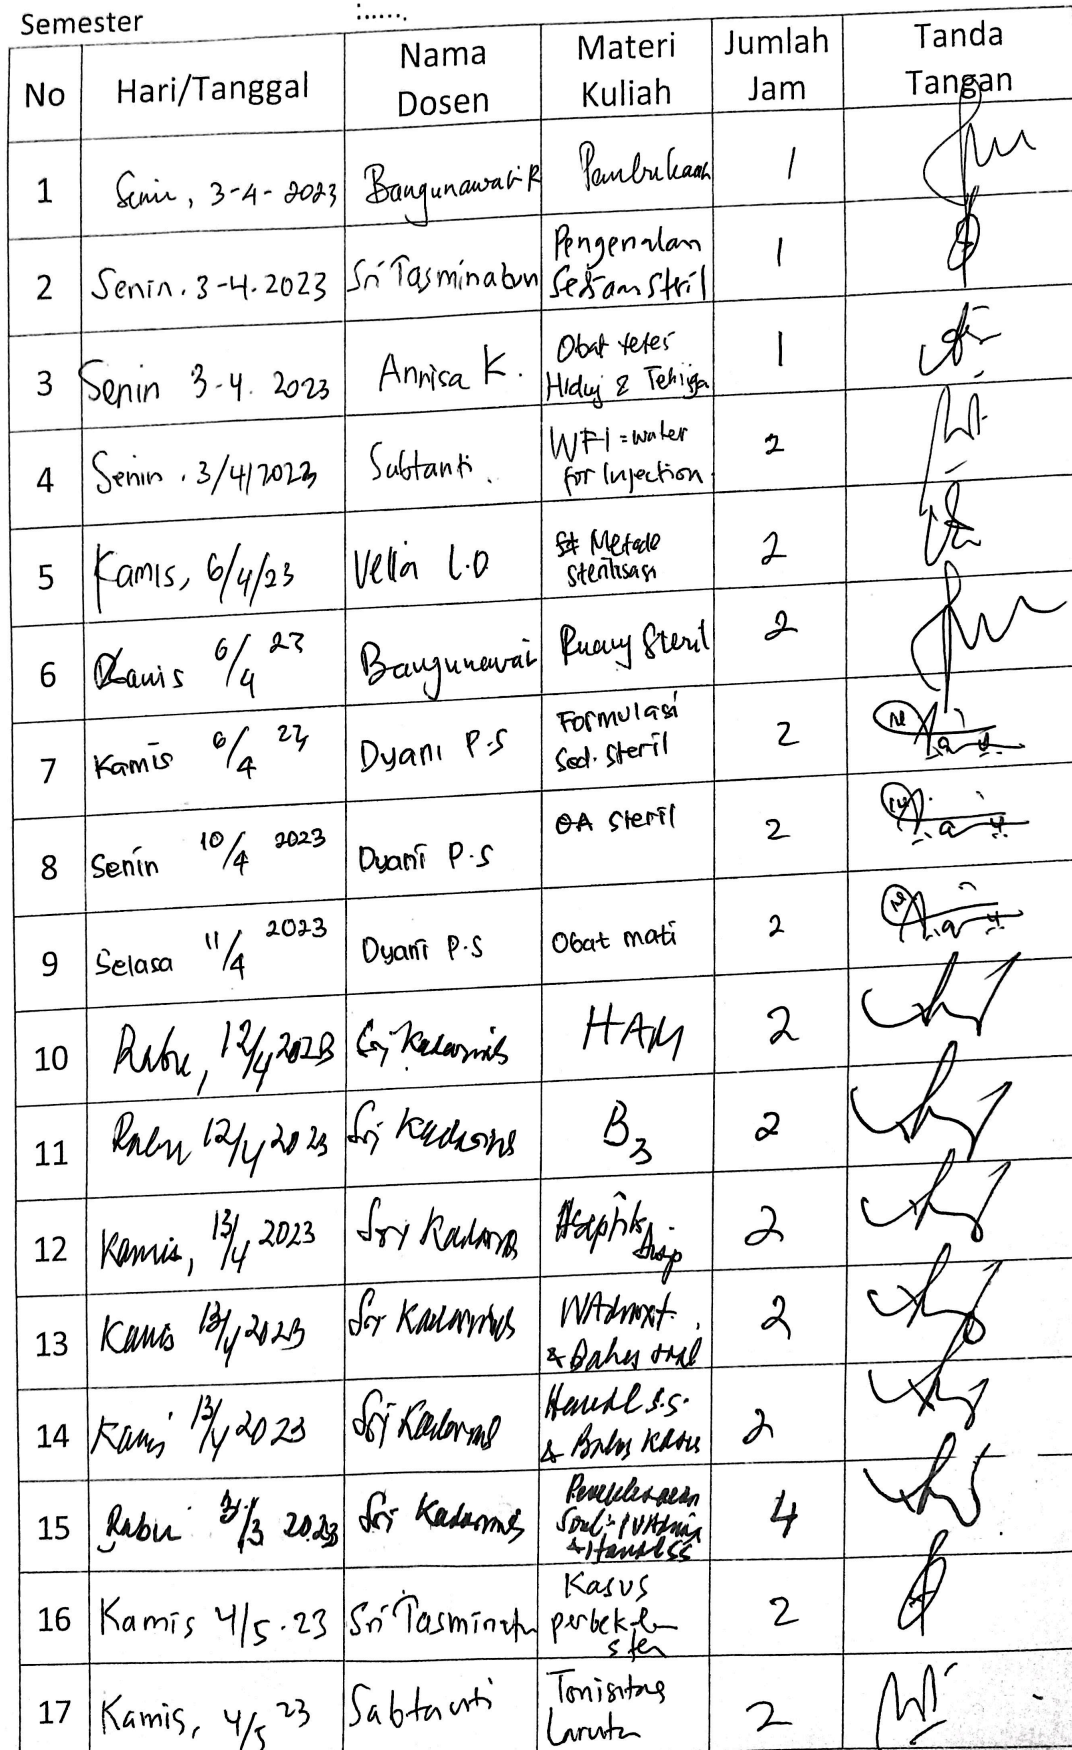 Semester :......
No Hari/Tanggal Nama Dosen Materi Kuliah Jumlah Jam Tanda Tangan
1 Senin, 3-4-2023 Bangunawati R Pembukaan 1
2 Senin. 3-4.2023 Sri Tasminatun Pengenalan Sediaan Steril 1
3 Senin 3-4. 2023 Annisa K. Obat tetes Hidung & Telinga 1
4 Senin . 3/4/2023 Sabtanti . WFI = water for Injection 2
5 Kamis, 6/4/23 Vella L.O Metode sterilisasi 2
6 Kamis 6/4 23 Bangunawati Ruang Steril 2
7 Kamis 6/4 23 Dyani P.S Formulasi Sed. steril 2
8 Senin 10/4 2023 Dyani P.S QA steril 2
9 Selasa 11/4 2023 Dyani P.S Obat mati 2
10 Rabu, 12/4 2023 Sri Kadarinah HAM 2
11 Rabu 12/4 2023 Sri Kadarinah B3 2
12 Kamis, 13/4 2023 Sri Kadarinah Aseptik 2
13 Kamis 13/4 2023 Sri Kadarinah & Bahas soal 2
14 Kamis 13/4 2023 Sri Kadarinah Handl s.s. & Bahas Kasus 2
15 Rabu 3/3 2023 Sri Kadarinah 4
16 Kamis 4/5.23 Sri Tasminatun Kasus 2
17 Kamis, 4/5 23 Sabtanti Tonisitas Larutan 2